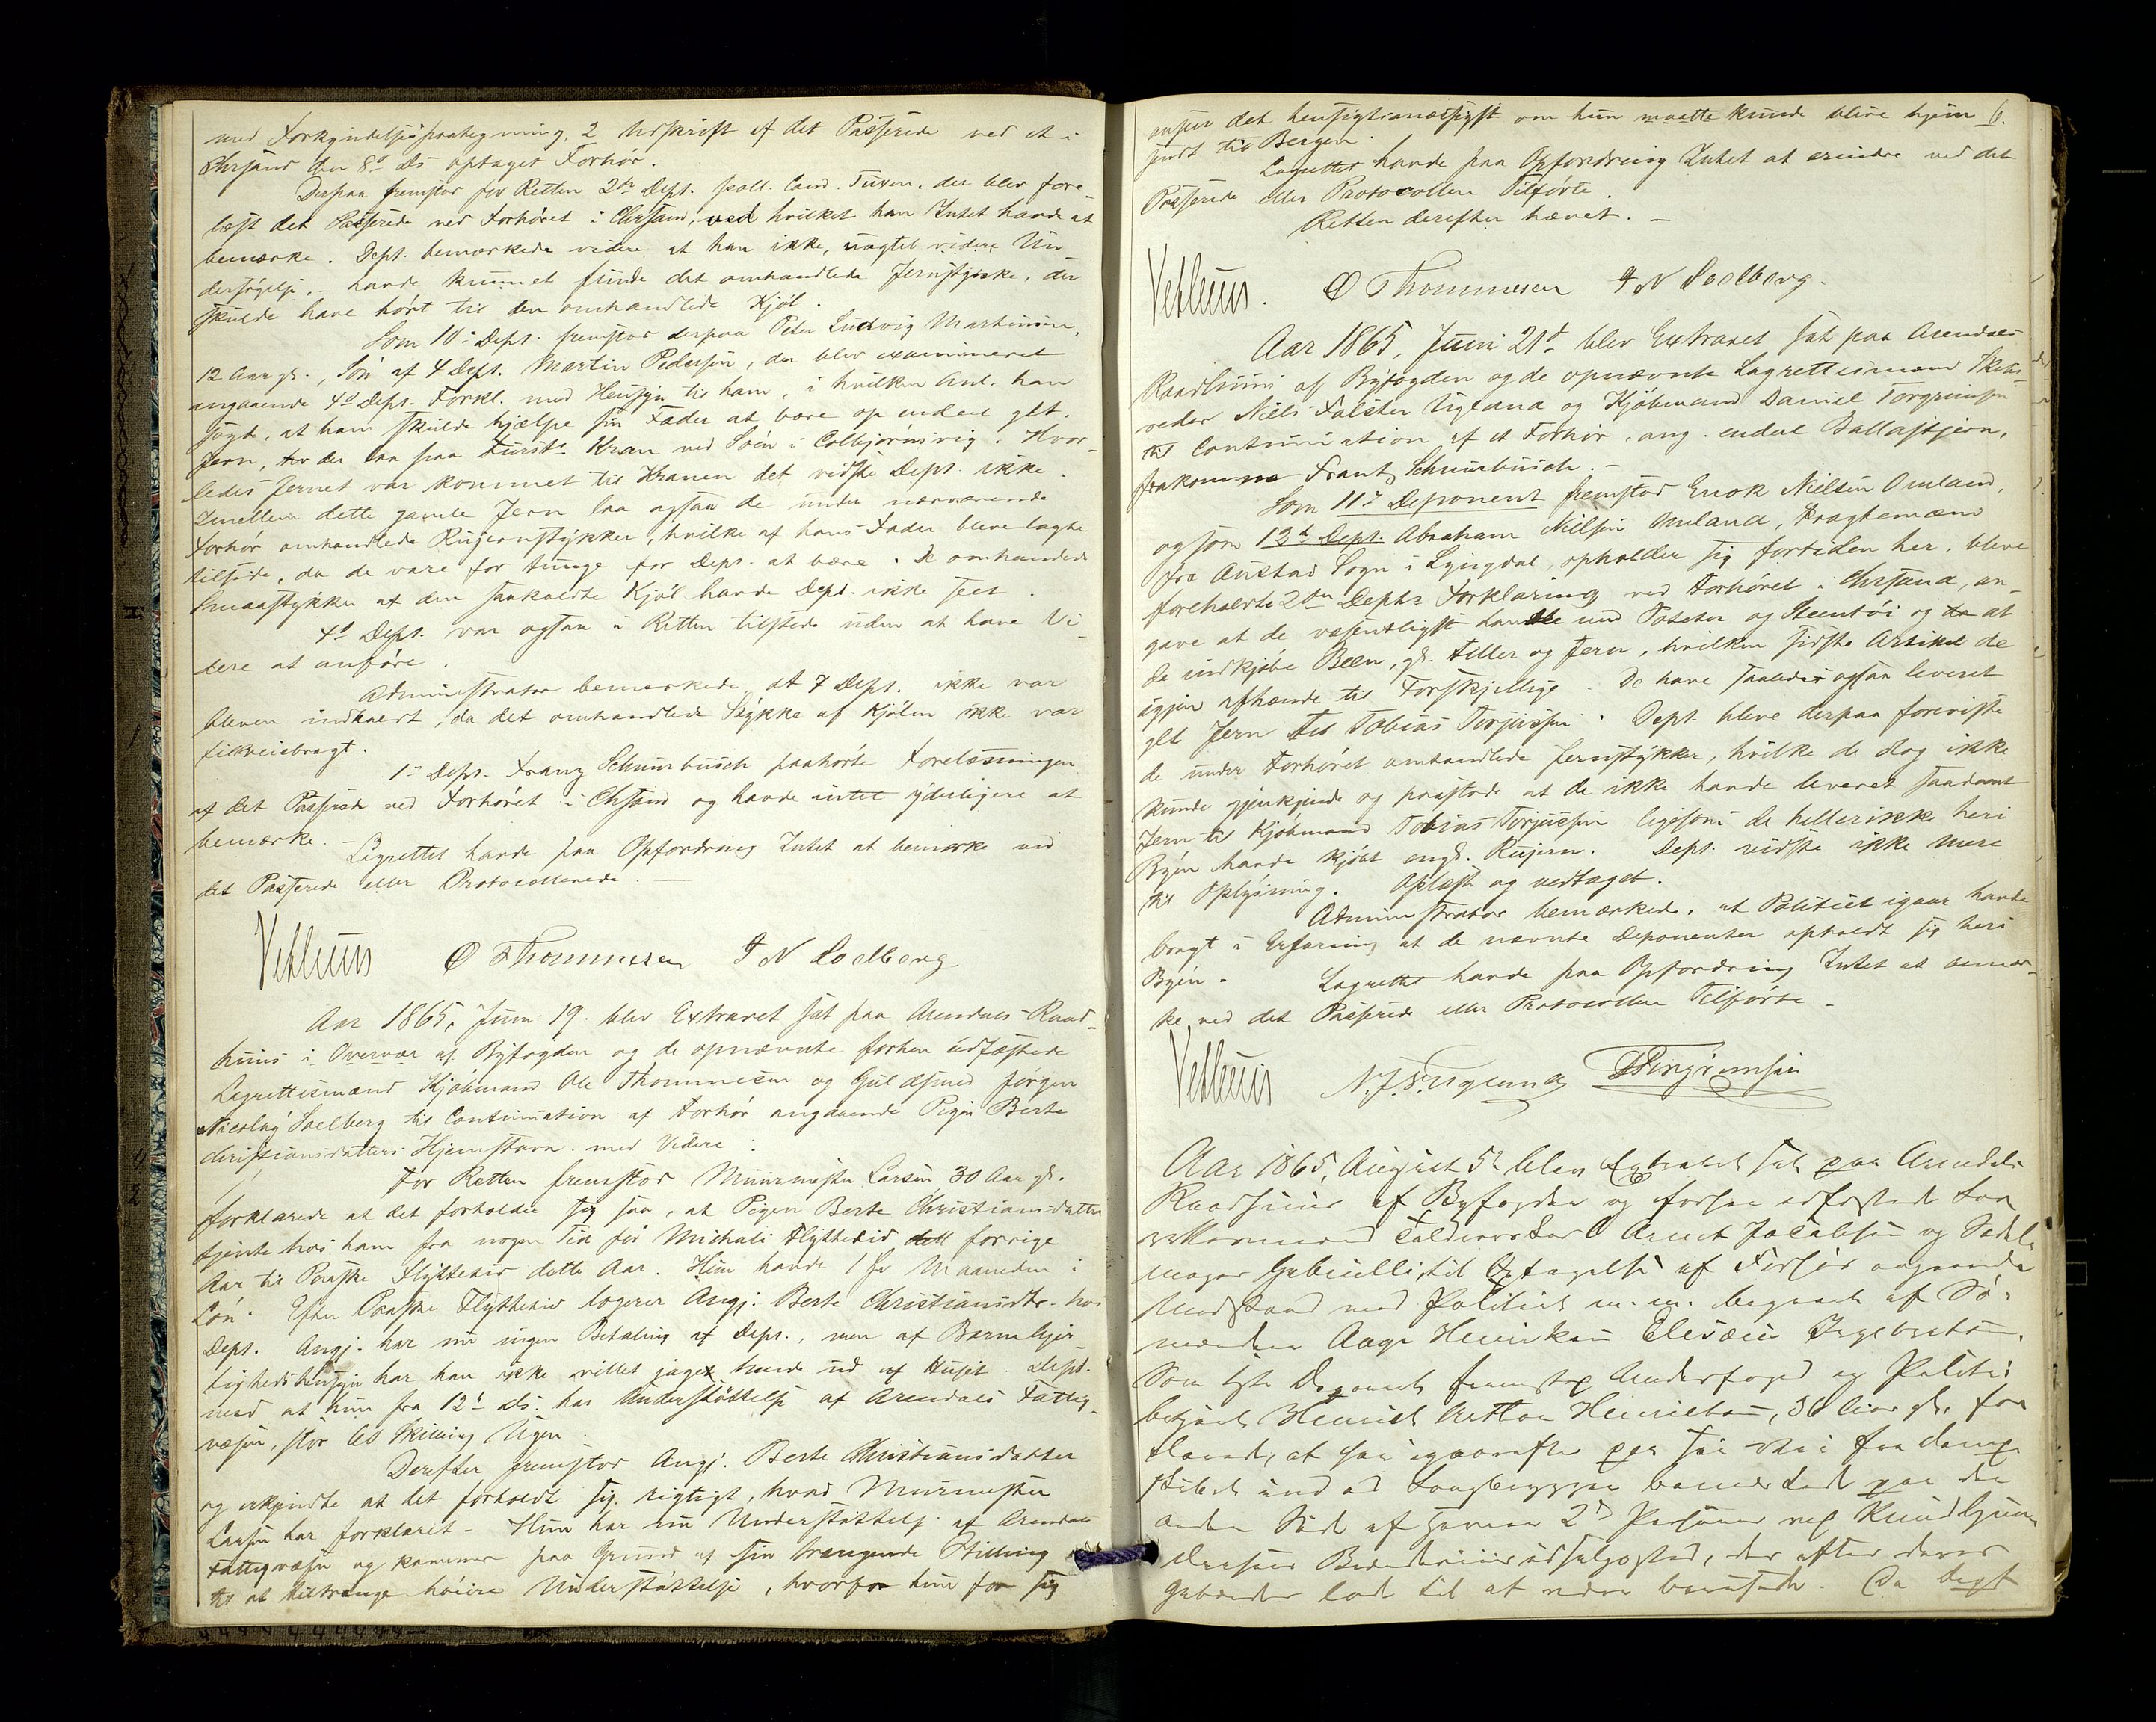 med Forkyndelsespaategning, 2 Udskrift af det Passerede ved et i
Chrsand den 8d ds optaget Forhør.
Derpaa fremstod for Retten 2den Dept. Cand. Tuxen, der blev fore-
læst det Passerede ved Forhøret i Chrsand, ved hvilket han Intet havde at
bemærke. Dept. bemærkede videre at han ikke, uagtet videre Un-
dersøgelse, – havde kunnet finde det omhandlede Jernstykke, der
skulde have hørt til den omhandlede Kjøl.
Som 10de Dept. fremstod derpaa Peter Ludvig Martinsen,
12 Aar gl., Søn af 4 Dept. Martin Pedersen, der blev examineret
angaaende 4d Depts. Forkl. med Hensyn til ham, i hvilken Anl. han
sagde, at han skulde hjælpe sin Fader at bære op endeel glt.
Jern, der laa paa Kran ved Søen i Colbjørnsvig. Hvor-
ledes Jernet var kommet til Kranen det vidste Dept. ikke.
Imellem dette gamle Jern laa ogsaa de under nærværende
Forhør omhandlede Rujernstykker, hvilke af hans Fader bleve lagte
tilside, da de vare for tunge for Dept. at bære. De omhandlede
Smaastykker af den saakaldte Kjøl havde Dept. ikke seet.
4d Dept. var ogsaa i Retten tilstede uden at have Vi-
dere at anføre.
Administrator bemærkede, at 7 Dept. ikke var
bleven indkaldt, da det omhandlede Stykke af Kjølen ikke var
tilveiebragt.
1ste Dept. Franz Schnurbusch paahørte Forelæsningen
af det Passerede ved Forhøret i Chrsand og havde intet yderligere at
bemærke. –
Lagrettet havde paa Opfordring Intet at bemærke ved
det Passerede eller Protocollerede. –
Vetlhuus O Thommesen J N Soelberg
Aar 1865, Juni 19. blev Extraret sat paa Arendals Raad-
huus i Overvær af Byfogden og de opnævnte forhen edfæstede
Lagrettesmænd Kjøbmand Ole Thommesen og Guldsmed Jørgen
Nicolay Soelberg til Continuation af Forhør angaaende Pigen Berte
Christiansdatters Hjemstavn med Videre:
For Retten fremstod Muurmester Larsen 30 Aar gl.
forklarede at det forholder sig saa, at Pigen Berte Christiansdatter
tjente hos ham fra nogen Tid før Michaeli Flyttetid forrige
Aar til Paaske Flyttetid dette Aar. Hun havde 1 Maaneden i
Løn. Efter Paaske Flyttetid logerer Angj. Berte Christiansdtr. hos
Dept. Angj. har nu ingen Betaling af Dept., men af Barmhjer-
tighedshensyn har han ikke villet jaget hende ud af Huset. Dept.
med at hun fra 12te ds. har Understøttelse af Arendals Fattig-
væsen, stor 60 Skilling Ugen.
Derefter fremstod Angj. Berte Christiansdatter
og erkjendte at det forholdt sig rigtigt, hvad Muurmester
Larsen har forklaret. – Hun har nu Understøttelse af Arendals
Fattigvæsen og kommer paa Grund af sin trængende Stilling
til at tiltrænge høiere Understøttelse, hvorfor hun for sig
anseer det hensigtsmæssigst om hun maatte kunde blive hjem 6.
sendt til Bergen.
Lagrettet havde paa Opfordring Intet at erindre ved det
Passerede eller Protocollen Tilførte.
Retten derefter hævet. –
Vetlhuus. O Thommesen J N Soelberg.
Aar 1865, Juni 21d blev Extraret sat paa Arendals
Raadhuus af Byfogden og de opnævnte Lagrettesmænd Skibs-
reder Niels Falster Ugland og Kjøbmand Daniel Torgrimsen
til Continuation af et Forhør, ang. endeel Ballastjern,
frakommen Frantz Schnurbusch. –
Som 11te Deponent fremstod Enok Nielsen Omland,
og som 12te Dept. Abraham Nielsen Omland, Fragtemænd
fra Austad Sogn i Lyngdal, opholder sig fortiden her, bleve
foreholdte 2den Depts Forklaring ved Forhøret i Chrsand, an-
gave at de væsentligst handle med Poteter og Steentøi og at
de indkjøbe Been, gl. Filler og Jern, hvilken sidste Artikel de
igjen afhænde til Forskjellige. De have saaledes ogsaa leveret
glt Jern til Tobias Torjussen. Dept. bleve derpaa foreviste
de under Forhøret omhandlede Jernstykker, hvilke de dog ikke
kunde gjenkjende og paastode at de ikke havde leveret saadant
Jern til Kjøbmand Tobias Torjussen ligesom de heller ikke heri
Byen havde kjøbt engl. Rujern. Dept. vidste ikke mere
til Oplysning. Oplæst og vedtaget.
Administrator bemærkede, at Politiet igaar havde
bragt i Erfaring at de nævnte Deponenter opholdt sig heri
Byen. Lagrettet havde paa Opfordring Intet at bemær-
ke ved det Passerede eller Protocollen Tilførte –
Vetlhuus N.F. Ugland DTorgrimsen
Aar 1865, August 5t blev Extraret sat paa Arendals
Raadhuus af Byfogden og forhen edfæstede Lau-
Arent Jacobsen og Sadel-
mager Gabrielli, til Optagelse af Forhør angaaende
Modstand mod Politiet m. m. begaaet af Sø-
mændene Aage Henriksen Elesæus Ingebretsen.
Som 1ste Deponent fremstod Underfoged og Politi-
betjent Henrik Henriksen, 36 Aar gl., for
klarede, at han igaaraftes paa sin Vei fra Damp-
skibet ind ad Langbryggen bemærkede paa den
anden Side af Havnen 2de Personer ved Knud Gun-
dersens Brændeviinsudsalgssted, der efter deres
Gebærder lod til at være berusede. Da Dept